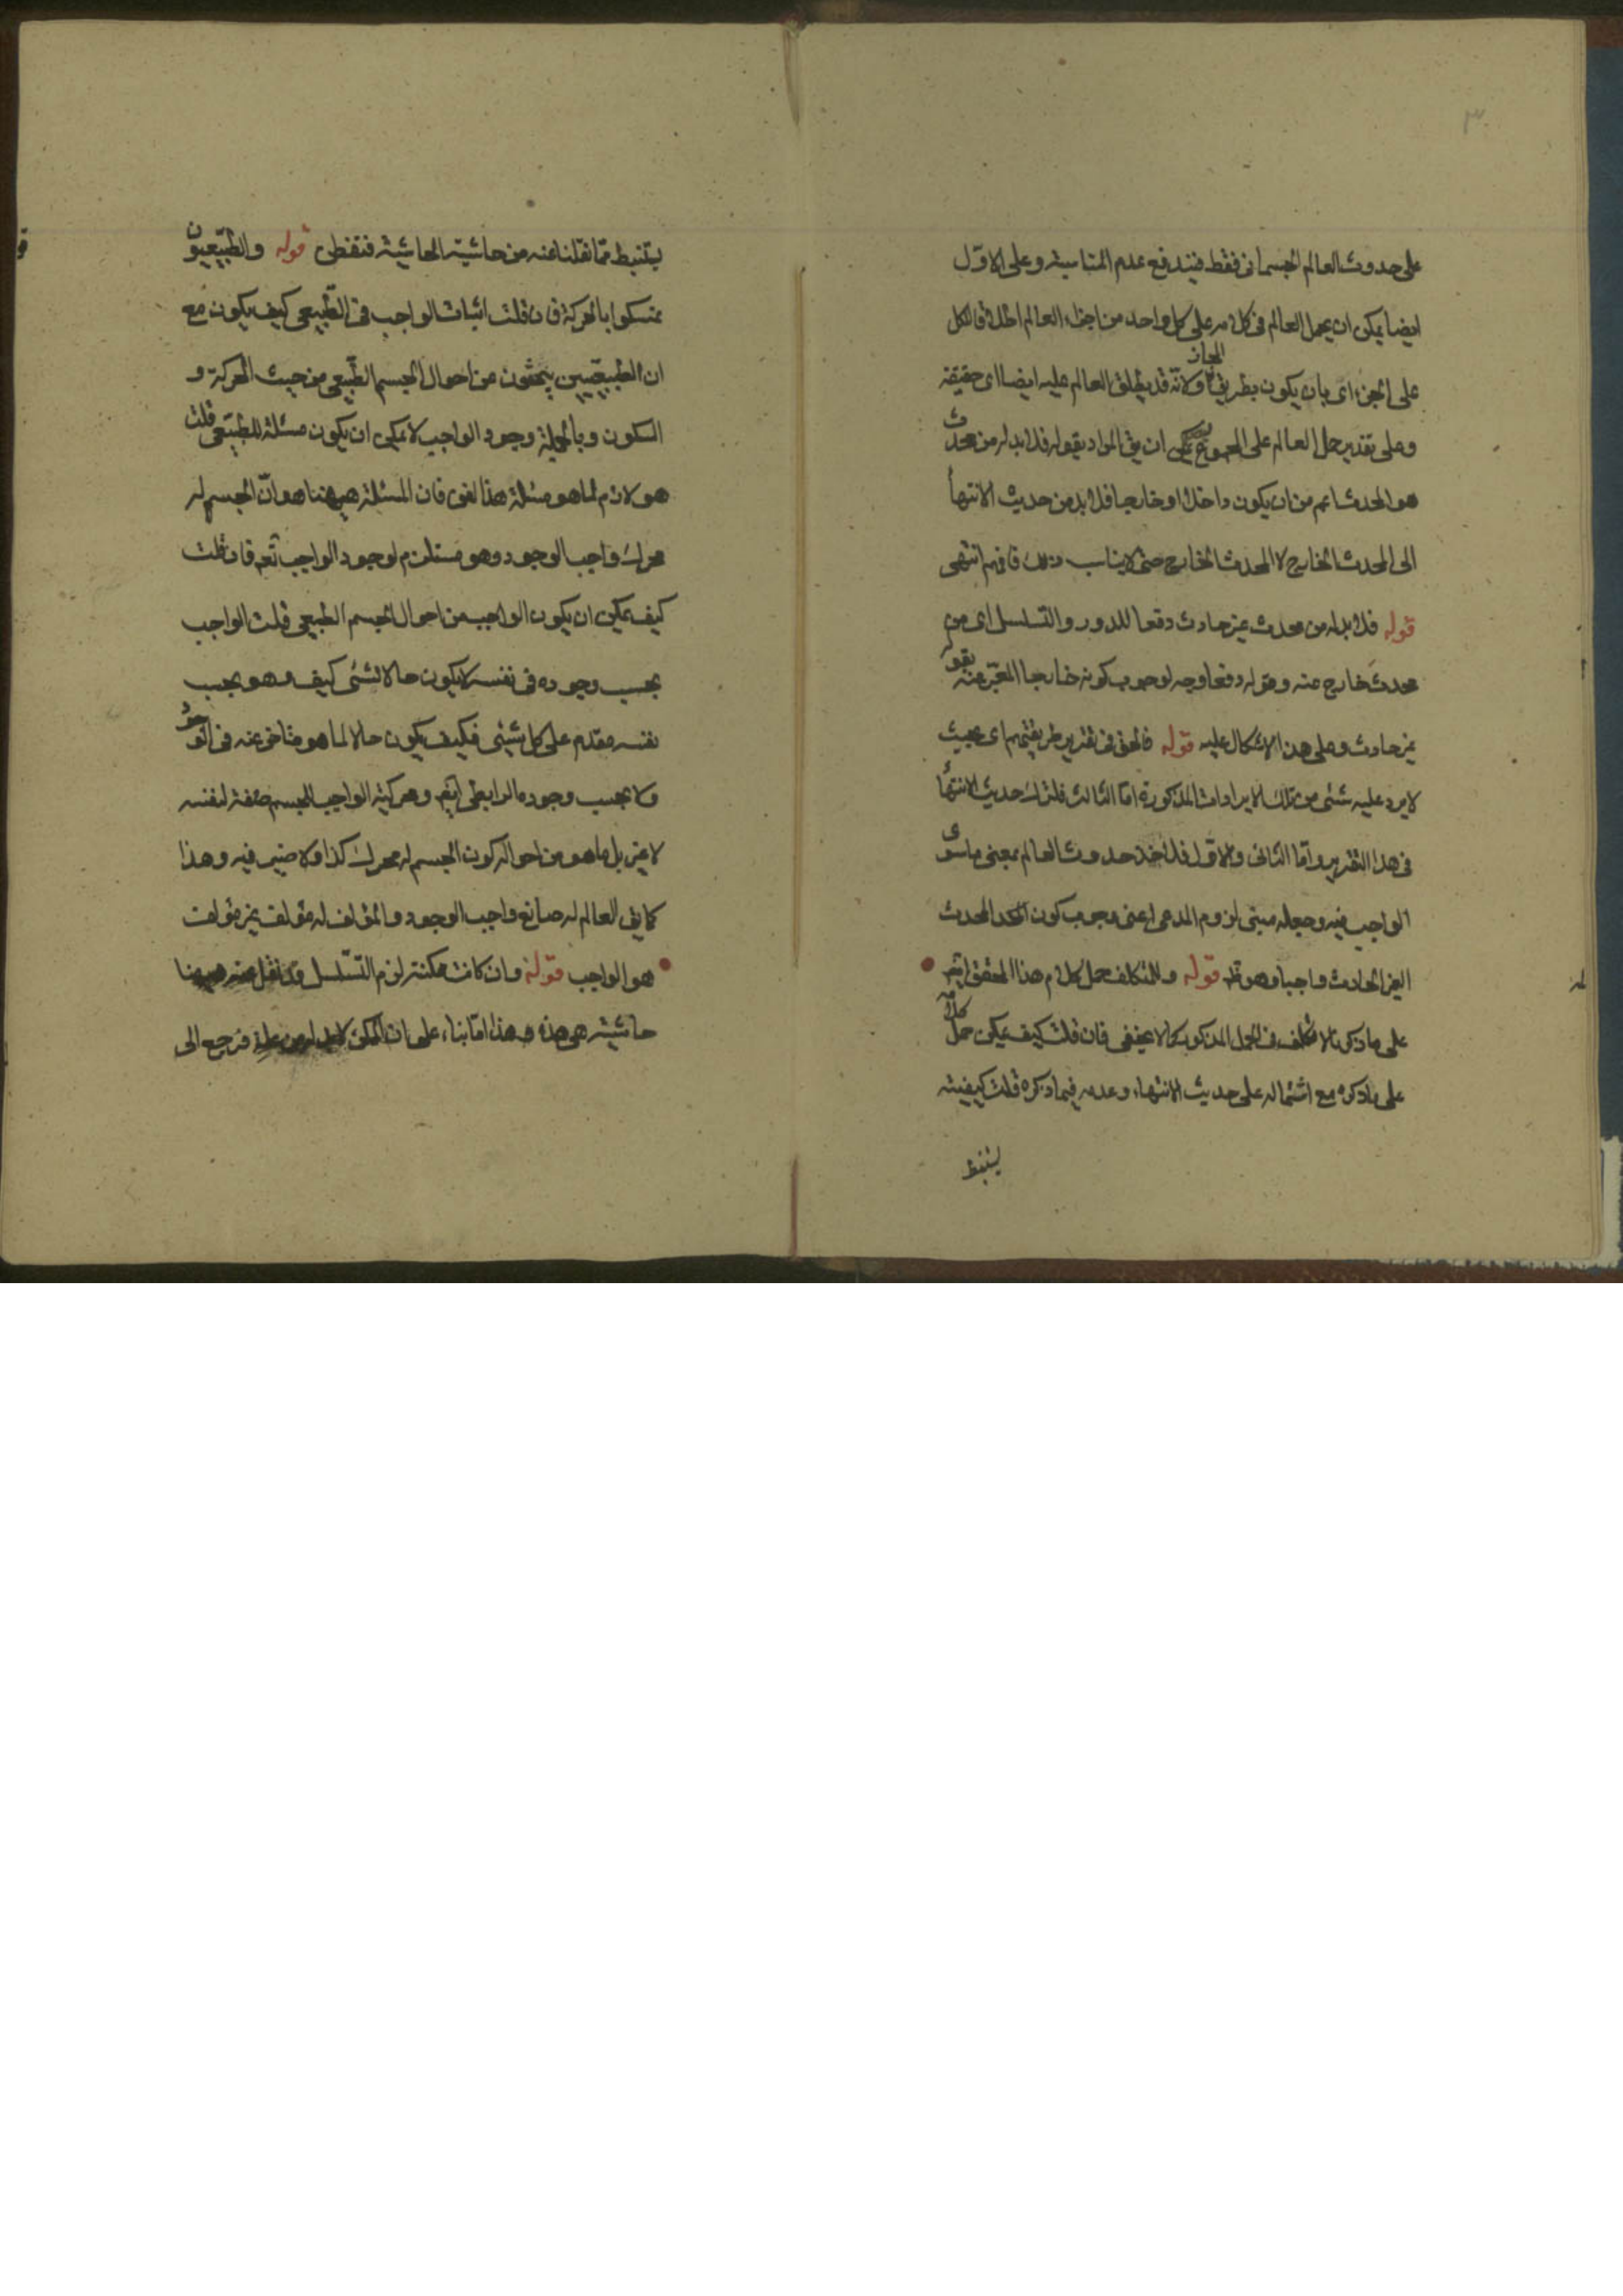 ٣
على حدوث العالم الجسمانى فقط فيندفع عدم المناسبة وعلى الاوّل
ايضا يمكن ان يحمل العالم فى كلامه على كل واحد من اجزاء العالم اطلاقا للكل
على الجزء اى بان يكون بطريق المجاز ولانّه قد يطلق العالم عليه ايضا اى حقيقة
وعلى تقدير حمل العالم على المجموع يمكن ان يق المراد بقوله فلا بد له من محدث
هو المحدث اعم من ان يكون داخلا او خارجا فلا بد من حديث الانتهاء
الى المحدث الخارج لا المحدث الخارج حتى لا يناسب ذلك فافهم انتهى
قوله فلا بد له من محدث غير حادث دفعا للدور والتسلسل اى من
محدث خارج عنه وقوله دفعا وجه لوجوب كونه خارجا المعبّر عنه بقوله
غير حادث وعلى هذا لا اشكال عليه قوله فالحق فى تقرير طريقتهم اى بحيث
لا يرد عليه شئى من تلك الايرادات المذكورة امّا الثالث فلترك حديث الانتهاء
فى هذا التقرير وامّا الثانى والاوّل فلاخذ حدوث العالم بمعنى ما سوى
الواجب فيه وجعله مبنى لزوم المدعى اعنى وجوب كون المحدث
الغير الحادث واجبا وهو ظ قوله وللتكلف حمل كلام هذا المحقق ايضا
على ما ذكرنا لا تكلف فى الحمل المذكور كما لا يخفى فان قلت كيف يمكن حمل كلامه
على ما ذكره مع اشتماله على حديث الانتهاء وعدمه فيما ذكره قلت كيفيته
يستنبط
يستنبط ممّا نقلنا عنه من حاشية الحاشية فتفطن قوله والطبيعيون
تمسكوا بالحركة فان قلت اثبات الواجب فى الطبيعى كيف يكون مع
ان الطبيعيين يبحثون عن احوال الجسم الطبيعى من حيث الحركة و
السكون وبالجملة وجود الواجب لا يمكن ان يكون مسئلة للطبيعى قلت
هو لازم لما هو مسئلة هذا الفن فان المسئلة ههنا هو انّ الجسم له
محرك واجب الوجود وهو مستلزم لوجود الواجب تعم فان قلت
كيف يمكن ان يكون الواجب من احوال الجسم الطبيعى قلت الواجب
بحسب وجوده فى نفسه لا يكون حالا لشئى كيف وهو بحسب
نفسه مقدم على كل شيئى فكيف يكون حالا لما هو متاخر عنه فى الوجود
ولا بحسب وجوده الرابطى ايضا ومحركية الواجب للجسم صفة لنفسه
لا غير بل ما هو من احواله كون الجسم له محرك كذا ولا ضير فيه وهذا
كما يق العالم له صانع واجب الوجود والمؤلف له مؤلف غير مؤلف
هو الواجب قوله وان كانت ممكنة لزم التسلسل قد نقل عنه ههنا
حاشيته هى هذه وهذا امّا بناء على ان الممكن لابد له من علة فرجع الى